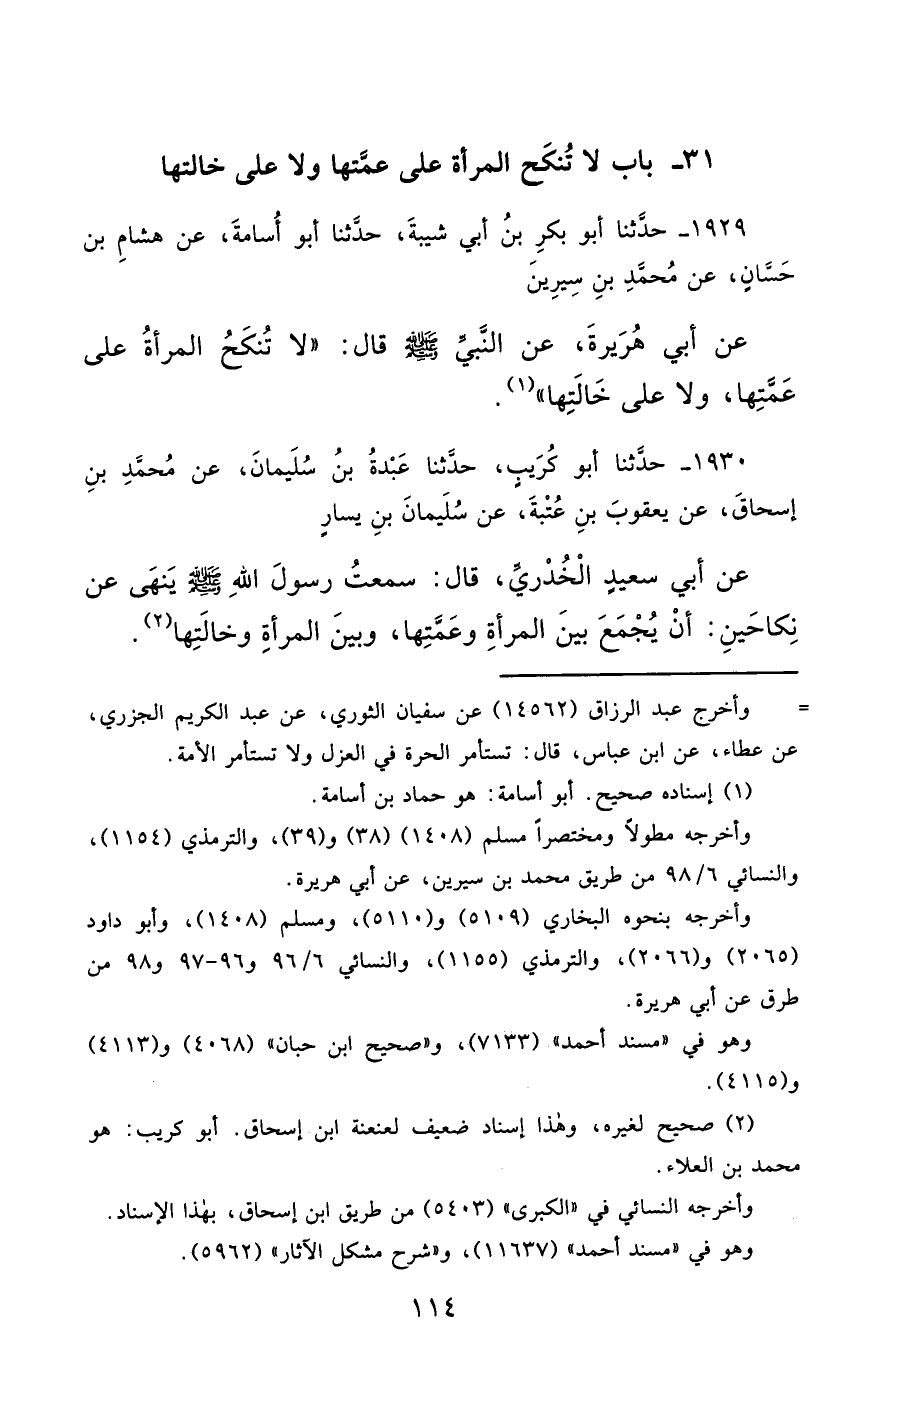 ٣١ـ باب لا تُنكَح المرأة على عمَّتها ولا على خالتها
١٩٢٩ـ حدَّثنا أبو بكرِ بنُ أبي شيبةَ، حدَّثنا أبو أُسامةَ، عن هشامِ بن
حَسَّانٍ، عن مُحمَّدِ بنِ سِيرِينَ
عن أبي هُرَيرةَ، عن النَّبيِّ ﷺ قال: «لا تُنكَحُ المرأةُ على
عَمَّتِها، ولا على خَالَتِها»(١).
١٩٣٠ـ حدَّثنا أبو كُرَيبٍ، حدَّثنا عَبْدةُ بنُ سُلَيمانَ، عن مُحمَّدِ بنِ
إسحاقَ، عن يعقوبَ بنِ عُتْبةَ، عن سُلَيمانَ بنِ يسارٍ
عن أبي سعيدٍ الْخُدْريِّ، قال: سمعتُ رسولَ اللهِ ﷺ يَنهَى عن
نِكاحَينِ: أنْ يُجْمَعَ بينَ المرأةِ وعَمَّتِها، وبينَ المرأةِ وخالَتِها(٢).
= وأخرج عبد الرزاق (١٤٥٦٢) عن سفيان الثوري، عن عبد الكريم الجزري،
عن عطاء، عن ابن عباس، قال: تستأمر الحرة في العزل ولا تستأمر الأمة.
(١) إسناده صحيح. أبو أسامة: هو حماد بن أسامة.
وأخرجه مطولاً ومختصراً مسلم (١٤٠٨) (٣٨) و(٣٩)، والترمذي (١١٥٤)،
والنسائي ٩٨/٦ من طريق محمد بن سيرين، عن أبي هريرة.
وأخرجه بنحوه البخاري (٥١٠٩) و(٥١١٠)، ومسلم (١٤٠٨)، وأبو داود
(٢٠٦٥) و(٢٠٦٦)، والترمذي (١١٥٥)، والنسائي ٩٦/٦ و٩٦-٩٧ و٩٨ من
طرق عن أبي هريرة.
وهو في «مسند أحمد» (٧١٣٣)، و«صحيح ابن حبان» (٤٠٦٨) و(٤١١٣)
و(٤١١٥).
(٢) صحيح لغيره، وهٰذا إسناد ضعيف لعنعنة ابن إسحاق. أبو كريب: هو
محمد بن العلاء.
وأخرجه النسائي في «الكبرى» (٥٤٠٣) من طريق ابن إسحاق، بهٰذا الإسناد.
وهو في «مسند أحمد» (١١٦٣٧)، و«شرح مشكل الآثار» (٥٩٦٢).
١١٤